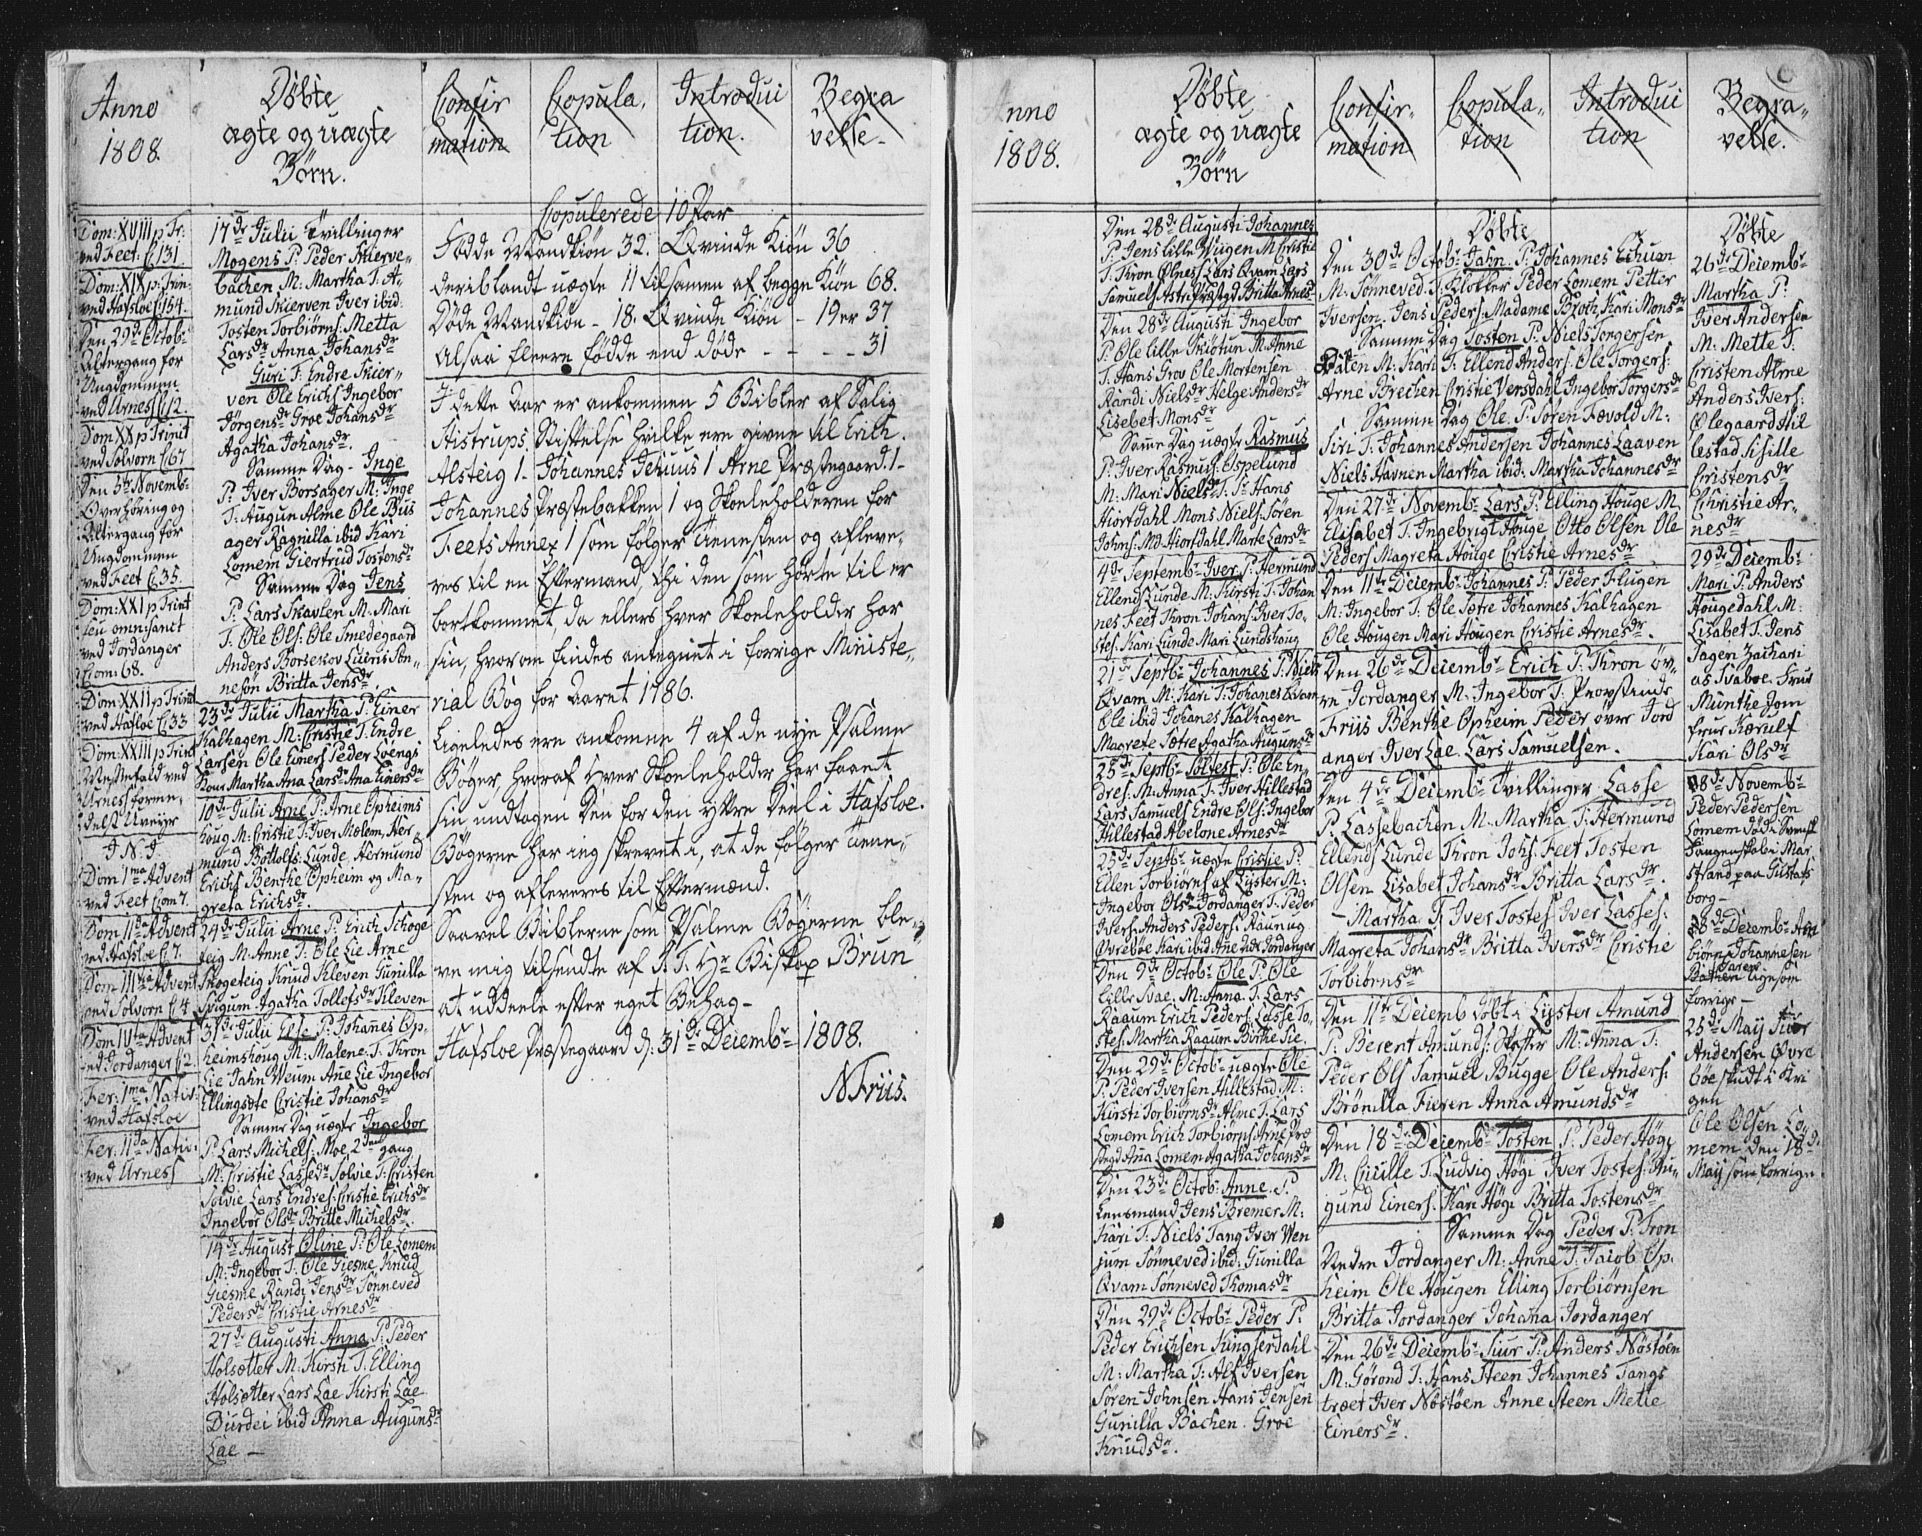 Anno
1808.
Døbte
ægte og uægte
Børn.
Confir
mation
Copula,
tion
Introdui
tion.
Begra
velse.
Dom: XVIII p Tr:
ved Feet. C. 131.
Dom: XIX p: Trin:
ved Hafsloe C. 154.
Den 29de Octob:
Altergang for
Ungdommen
ved Urnes C. 12.
Dom XX p Trinit
ved Solvorn C. 67.
Den 5te Novemb:
Overhøring og
Altergang for
Ungdommen
ved Feet C. 35.
Dom: XXI p Trint
seu omn: sanct
ved Jordanger
Com: 68.
Dom XXII p Trinit
ved Hafsloe C. 33
Dom: XXIII p Trint
Messefald ved
Urnes forme,
delst Uveyr
I. N. I.
Dom 1ma Advent
ved Feet Com 7.
Dom 11da Advent
ved Hafsloe C. 7.
Dom IIItia Advent
ved Solvorn C. 4
Dom IVta Advent
ved Jordanger C. 2.
Fer: 1ma Nativ:
ved Hafsloe
Fer: 11da Nativ:
ved Urness
17de Julii Tvillinger
Mogens P: Peder Skierve,,
bachen M: Martha T: A,,
mund Skierven Iver ibid:
Tosten Torbiørns: Metta
Larsdr Anna Johansdr
Guri T: Endre Skier,,
ven Ole Erichs Ingebor
Jørgensdr Groe Johansdr
Agatha Johansdr.
Samme Dag - Inge
P: Iver Borsager M: Inge
T: Augun Alme Ole Bus
ager Ragnilla ibid Kari
Lomem Giertrud Tostensdr
Samme Dag Jens
P: Lars Skavlen M: Mari
T: Ole Ols: Ole Smedegaard
Anders Borsekov Luiris Søn,
nesøn Britta Jensdr.
23de Julii Martha P: Einer
Kalhagen M: Cristie T: Endre
Larsen Ole Einers Peder Loengs
Kone Martha Ana Larsdr Ana Einersdr
10de Julii Arne P: Arne Opheims
houg M: Cristie T: Iver Mælem, Her,
mund Bottolfs: Lunde, Hermund
Erichs Benthe Opheim og Ma,,
greta Erichsdr.
24de Julii Arne P: Erich Schoge
teig M: Anne T: Ole Lie Arne
Skogeteig Knud Kleven Gunilla
Svigum Agatha Tollefsdr Kleven
31de Julii Elle P: Johanes Op,
heimshoug M: Malene T: Thron
Lie Jahn Weum Ane Lie Ingebor
Ellingsdte Cristie Johansdr
Samme Dag uægte Ingebor
P: Lars Michels: Moe, 2den gang
M: Cristie Lassedr Solvie T: Cristen
Solvie Lars Endres. Cristie Erichsdr
Ingebor Olsdr Britte Michelsdr.
14de August Oline P: Ole Lomem
M: Ingebor T: Ole Giesme Knud
Giesme Randi Jensdr Sønneved
Pedersdr Cristie Arnesdr
27de Augusti Anna P: Peder
Holsætter M: Kirsti T: Elling
Holsætter Lars Lae Kirsti Lae
Durdei ibid Anna Augunsdr
Lae -
Copulerede 10 Par
Fødde Mandkiøn 32. Qvinde Kiøn 36
deriblandt uægte 11 tilsamen af begge Kiøn 68.
Døde Mandkiøn - 18. Qvinde Kiøn - 19 er 37
Alsaa fleere fødde end døde - - - - 31
I dette Aar er ankommen 5 Bibler af Salig
Histrups Stiftelse hvilke ere givne til Erich
Alsteig 1 - Johannes 1 Arne Præstegaard 1 -
Johannes Præstebakken 1 og Skoeleholderen for
Feets Annex 1 som følger Tienesten og afleve,
res til en Eftermand, thi den som hørte til er
bortkommet, da ellers hver Skoeleholder har
sin, hvorom findes antegnet i forrige Ministe,
rial Bog for Aaret 1786.
Ligeledes ere ankomne 4 af de nye Psalme
Bøger, hvoraf hver Skoeleholder har faaet
sin undtagen den for den yttre Deel i Hafsloe.
Bøgerne har ieg skrevet i, at de følger Tiene,,
sten og afleveres til Eftermænd.
Saavel Biblerne som Psalme Bøgerne ble,
ve mig tilsendte af S. T. Hr Biskop Brun
at uddeele efter eget Behag -
Hafsloe Præstegaard d: 31de Deiembr 1808.
N Friis.
Anno
1808.
Døbte
ægte og uægte
Børn
Confir-
mation
Copula,,
tion
Introdui
tion
Begra,,
velse.
Den 28de Augusti Johannes
P: Jens lille Wiigen M Cristie
T: Thron Ølness Lars Qvam Lars
Samuels Astri Præstgd Britta Arnesdr
Den 28de Augusti Ingebor
P: Ole lille Skiøtun M Anne
T: Hans Grov Ole Mortensen
Randi Nielsdr Helge Andersdr
Lisebet Monsdr
Same Dag uægte Rasmus
P: Iver Rasmus: Espelund
M: Mari Nielsdr T: Hans
Hiortdahl Mons Niels: Søren
Johns: Md Hiortdahl Marte Larsdr
4de Septembr Iver P: Hermund
Ellends Lunde M: Kirsti T: Johan
nes Feet Thron Johans: Iver To,
stes. Kari Lunde Mari Lundshoug
21de Septbr Johannes P: Niels
Qvam M: Kari T: Johanes Qvam
Ole ibid Johanes Kalhagen
Magrete Sætre Agatha Augunsdr
25de Septbr Solvest P: Ole En
dres. M: Anna T: Iver Hillestad
Lars Samuels Endre Ols: Ingebor
Hillestad Abelone Arnesdr
25de Septbr uægte Cristie P:
Ellen Torbiørns af Lyster M:
Ingebor Olsdr Jordanger T: Peder
Ivers. Anders Peders. Raunug
Øvrebøe Kari ibid. Ane Jordanger
Den 9de Octobr Ole P: Ole
lille Svae. M: Anna T: Lars
Raaum Erich Peders Lasse To,
stes: Martha Raaum Birthe Lie
Den 29de Octobr uægte Ole
P: Peder Iversen Hillestad M:
Kirsti Torbiørnsdr Alme T: Lars
Lomem Erich Torbiørns Arne Præ
stegd Ana Lomem Agatha Johansdr
Den 23de Octobr Anne P:
Lensmand Jens Bremer M:
Kari T: Niels Tang Iver Wen
jum Sønneved ibid: Gunilla
Qvam Sønneved Thomasdr
Den 29de Octobr Peder P:
Peder Erichsen Kingserdahl
M: Martha T: Alf Iversen
Søren Johnsen Hans Jensen
Gunilla Bachen. Groe
Knudsdr.
Døbte
Den 30de Octobr Jahn. P: Johannes Eikum
M: Sønneved. T: Klokker Peder Lomem Petter
Iversen. Jens Peders: Madame Broth Kari Monsdr
Samme Dag Tosten P: Niels Torgersen
Dalen M: Kari T: Ellend Anders: Ole Torgers:
Arne Brechen Cristie Versdahl Ingebor Torgersdr
Samme Dag Ole P: Søren Fævold M:
Siri T: Johannes Andersen Johannes Laaven
Niels Havnen Martha ibid. Martha Johannesdr
Den 27de Novembr Lars P: Elling Houge M
Elisabet T: Ingebrigt Houge Otto Olsen Ole
Peders Magreta Houge Cristie Arnesdr
Den 11te Deiembr Johannes P: Peder Flugen
M: Ingebor T: Ole Sætre Johannes Kalhagen
Ole Hougen Mari Hougen Cristie Arnesdr.
Den 26de Deiembr Erich P: Thron øv,
re Jordanger M: Ingebor T: Provstinde
Friis Benthe Opheim Peder øvre Jord
anger Iver Lae. Lars Samuelsen.
Den 4de Deiembr Tvillinger Lasse
P: Lassebachen M: Martha T: Hermund
Ellends Lunde Thron Johs. Feet Tosten
Olsen Lisabet Johansdr Britta Larsdr.
- Martha T: Iver Tostes: Iver Lasses:
Magreta Johansdr Britta Iversdr Cristie
Torbiørnsdr
Den 11te Deiemb døbt i Lyster Amund
P: Berent Amunds: M: Anna T:
Peder Ols Samuel Bugge Ole Anders:
Brønilla Fieren Anna Amundsdr
Den 18de Deiembr Tosten P: Peder Høgi
M: Cicille T: Ludvig Høgi Iver Tostes: Au,
gund Einers. Kari Høgi Britta Tostensdr
Samme Dag Peder P: Tron
Nedre Jordanger M: Anne T: Jacob Op,
heim Ole Hougen Elling Torbiørnsen
Britta Jordanger Johana Jordanger
Den 26de Deiembr Siur P: Anders Nøstøen
M: Gørond T: Hans Steen Johannes Tangs
træet Iver Nøstøen Anne Steen Mette
Einersdr.
Døbte
26de Deiembr
Martha P:
Iver Andersen
M: Mette T:
Cristen Alme
Anders Ivers:
Olegaard Hil
lestad Sisille
Cristensdr
Christie Ar,
nesdr
29de Deiembr
Mari P: Anders
Hougedahl M:
Lisabet T: Jens
Fagen Zachari
as Svaboe. Frue
Munthe Jom
frue Kærulf
Kari Olsdr
08de Novembr
Peder Pedersen
Lomem død i Svensk
Fangenskab i Mar
strand paa Gustavs
borg -
28de Deiembr Arn
biørn Johannesen
Bachen ligesom
forrige -
25de May Siur
Andersen Øvre
bøe skudt i Kri
gen
Ole Olsen Lo,
mem den 18de
May som forrige